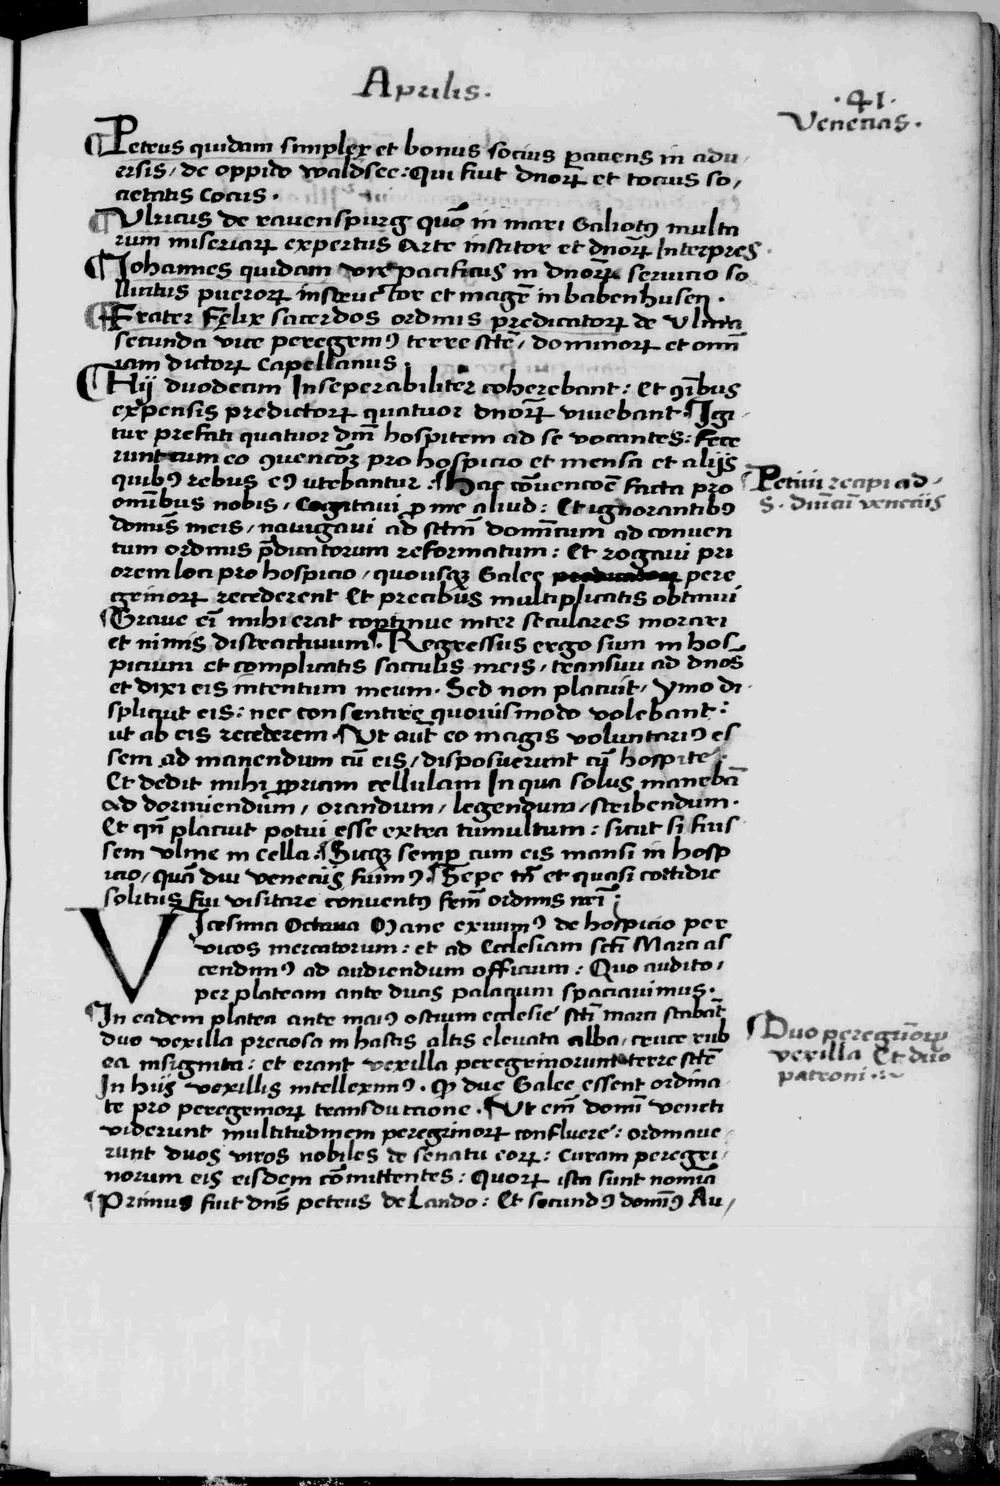 Aprilis.
.41.
Venetias.
¶ Petrus quidam simplex et bonus socius paciens in adu
ersis / de oppido waldsee: Qui fuit dnorꝝ et tocius so /
cietatis Cocus.
¶ Vlricus de ravenspurg quō in mari Galiotꝰ multa
rum miseriarꝝ expertus Arte institor et dnorꝝ Interpres.
¶ Johannes quidam vir pacificus in dnorꝝ servicio so
llicitus puerorꝝ instructor et magr̄ in babenhusen.
¶ Frater Felix sacerdos ordinis predicatorꝝ de Vlma
secunda vice peregrinꝰ terre sctē / dominorꝝ et omī
iam dictorꝝ Capellanus.
¶ Hij duodecim Inseperabiliter coherebant: Et oībus
expensis predictorꝝ quatuor dnorꝝ vivebant. ¶ Igi
tur prefati quatuor dnī hospitem ad se vocantes: fece
runt cum eo ꝯvencōꝫ pro hospicio et mensa et alijs
quibꝰ rebus eꝰ utebantur. ¶ Hac cōvencōe facta pro
omībus nobis, Cogitavi ꝑ me aliud: Et ignorantibꝰ
domīs meis / navigavi ad sctm̄ domīcum ad conven
tum ordinis p̄dicatorum reformatum: Et rogavi pri
orem loci pro hospicio / quousqꝫ Galee pere
grinorꝝ recederent Et precibus multiplicatis obtinui
¶ Grave eī mihi erat continue inter seculares morari
et nimis distractivum. ¶ Regressus ergo sum in hos
picium et complicatis sacculis meis / transivi ad dnōs
et dixi eis intentum meum. Sed non placuit / ymo di
splicuit eis: nec consentire quovismodo volebant:
ut ab eis recederem. Ut aut̄ eo magis voluntariꝰ es
sem ad manendum cū eis / disposuerunt cū hospite:
Et dedit mihi ꝓpriam cellulam In qua solus manebā
ad dormiendum / orandum / legendum / scribendum.
Et qn̄ placuit potui esse extra tumultum: sicut si fuis
sem vlme in cella. ¶ Sicqꝫ semꝑ cum eis mansi in hosp
icio / quā diu veneciis fuimꝰ. ¶ Sepe tn̄ et quasi cottidie
solitus fui visitare conventꝰ frm̄ ordinis nrī.
Vicesima Octava Mane exivimꝰ de hospicio per
vicos mercatorum: et ad Ecclesiam sctī Marci as
cendimꝰ ad audiendum officium: Quo audito /
per plateam ante ducis palacium spaciavimus.
¶ In eadem platea ante maiꝰ ostium ecclesie sctī marci stabāt
duo vexilla preciosa in hastis altis elevata alba / cruce rub
ea insignita: et erant vexilla peregrinorum terre sctē
In hiis vexillis intelleximꝰ. ꝙ due Galee essent ordina
te pro peregrinorꝝ transductione. Ut enī domī veneti
viderunt multitudinem peregrinorꝝ confluere: ordinave
runt duos viros nobiles de senatu eorꝝ: curam peregri /
norum eis eisdem cōmittentes: Quorꝝ ista sunt nomīa
¶ Primus fuit dns̄ petrus de Lando: Et secundꝰ domīꝰ Au /
¶ Petivi recipi ad
S. dnīcū veneciis
¶ Duo peregrinorꝝ
vexilla Et duo
patroni